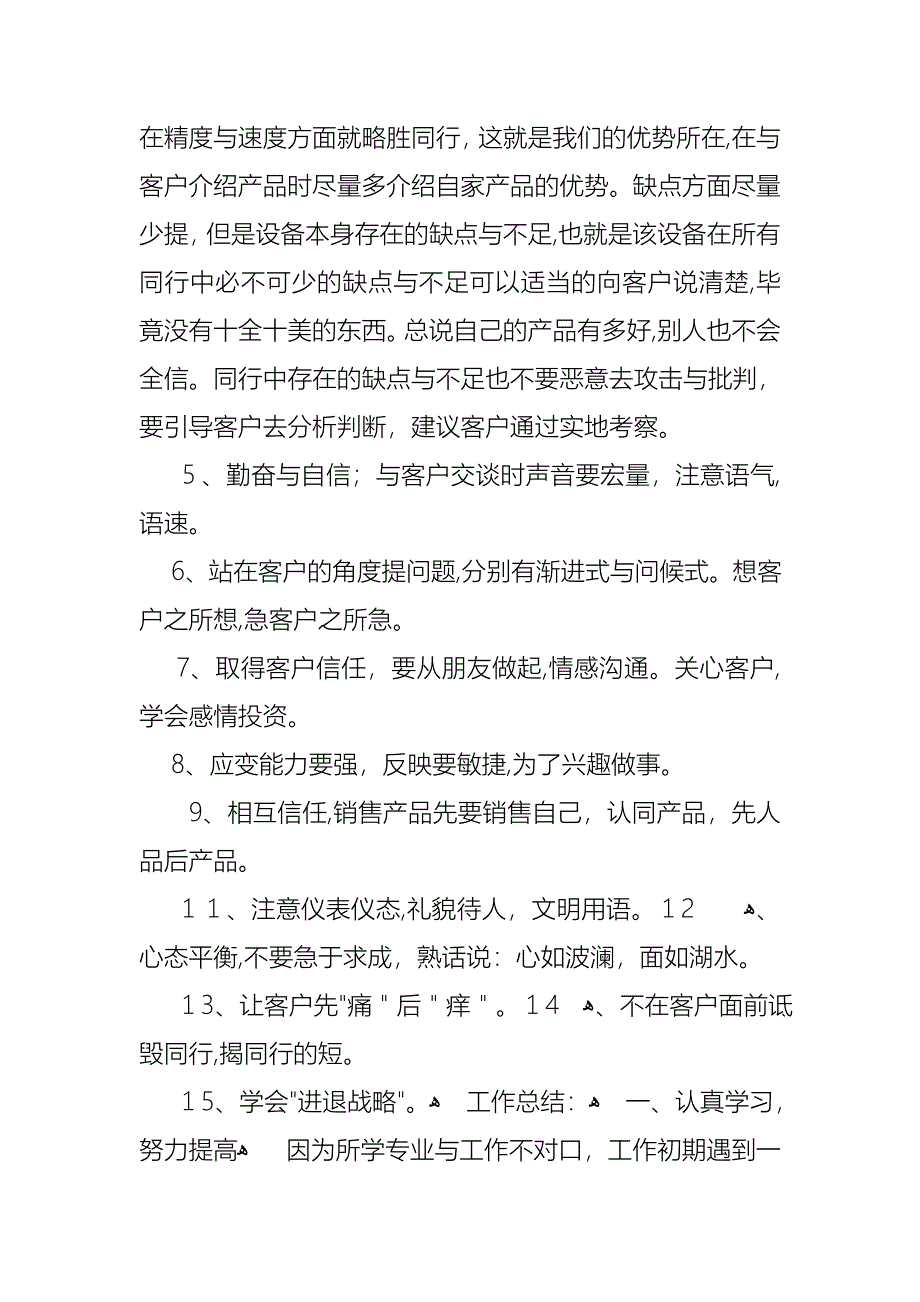 在精度与速度方面就略胜同行，这就是我们的优势所在,在与
客户介绍产品时尽量多介绍自家产品的优势。缺点方面尽量
少提，但是设备本身存在的缺点与不足,也就是该设备在所有
同行中必不可少的缺点与不足可以适当的向客户说清楚,毕
竟没有十全十美的东西。总说自己的产品有多好,别人也不会
全信。同行中存在的缺点与不足也不要恶意去攻击与批判，
要引导客户去分析判断，建议客户通过实地考察。
5、勤奋与自信；与客户交谈时声音要宏量，注意语气,
语速。
6、站在客户的角度提问题,分别有渐进式与问候式。想客
户之所想,急客户之所急。
7、取得客户信任，要从朋友做起,情感沟通。关心客户,
学会感情投资。
8、应变能力要强，反映要敏捷,为了兴趣做事。
9、相互信任,销售产品先要销售自己，认同产品，先人
品后产品。
11、注意仪表仪态,礼貌待人，文明用语。12 ﻫ、
心态平衡,不要急于求成，熟话说：心如波澜，面如湖水。
13、让客户先"痛＂后＂痒＂。14 ﻫ、不在客户面前诋
毁同行,揭同行的短。
15、学会"进退战略"。ﻫ 工作总结：ﻫ 一、认真学习，
努力提高ﻫ 因为所学专业与工作不对口，工作初期遇到一